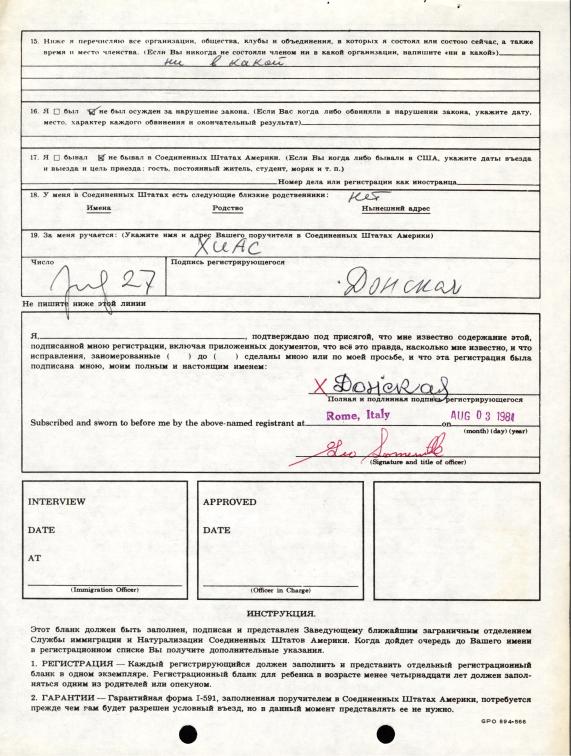 15. Ниже я перечисляю все организации, общества, клубы и объединения, в которых я состоял или состою сейчас, а также
время и место членства. (Если Вы никогда не состояли членом ни в какой организации, напишите «ни в какой»).
ни в какой
16. Я ☐ был ☑ не был осужден за нарушение закона. (Если Вас когда либо обвиняли в нарушении закона, укажите дату,
место, характер каждого обвинения и окончательный результат)
17. Я ☐ бывал ☑ не бывал в Соединенных Штатах Америки. (Если Вы когда либо бывали в США, укажите даты въезда
и выезда и цель приезда: гость, постоянный житель, студент, моряк и т. п.)
Номер дела или регистрации как иностранца
18. У меня в Соединенных Штатах есть следующие близкие родственники: нет
Имена Родство Нынешний адрес
19. За меня ручается: (Укажите имя и адрес Вашего поручителя в Соединенных Штатах Америки)
ХИАС
Число Подпись регистрирующегося
27 Донская
Не пишите ниже этой линии
Я, , подтверждаю под присягой, что мне известно содержание этой,
подписанной мною регистрации, включая приложенных документов, что всё это правда, насколько мне известно, и что
исправления, заномерованные ( ) до ( ) сделаны мною или по моей просьбе, и что эта регистрация была
подписана мною, моим полным и настоящим именем:
X Донская
Полная и подлинная подпись регистрирующегося
Rome, Italy AUG 03 1981
Subscribed and sworn to before me by the above-named registrant at on
(month) (day) (year)
(Signature and title of officer)
INTERVIEW APPROVED
DATE DATE
AT
(Immigration Officer) (Officer in Charge)
ИНСТРУКЦИЯ.
Этот бланк должен быть заполнен, подписан и представлен Заведующему ближайшим заграничным отделением
Службы иммиграции и Натурализации Соединенных Штатов Америки. Когда дойдет очередь до Вашего имени
в регистрационном списке Вы получите дополнительные указания.
1. РЕГИСТРАЦИЯ — Каждый регистрирующийся должен заполнить и представить отдельный регистрационный
бланк в одном экземпляре. Регистрационный бланк для ребенка в возрасте менее четырнадцати лет должен запол-
няться одним из родителей или опекуном.
2. ГАРАНТИИ — Гарантийная форма I-591, заполненная поручителем в Соединенных Штатах Америки, потребуется
прежде чем вам будет разрешен условный въезд, но в данный момент представлять ее не нужно.
GPO 894-566